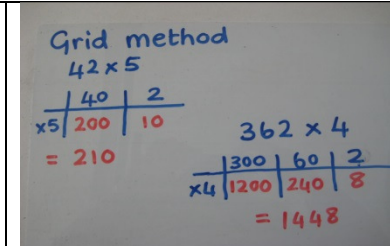 Grid method
42 x 5
40 2
x5 200 10
= 210
362 x 4
300 60 2
x4 1200 240 8
= 1448